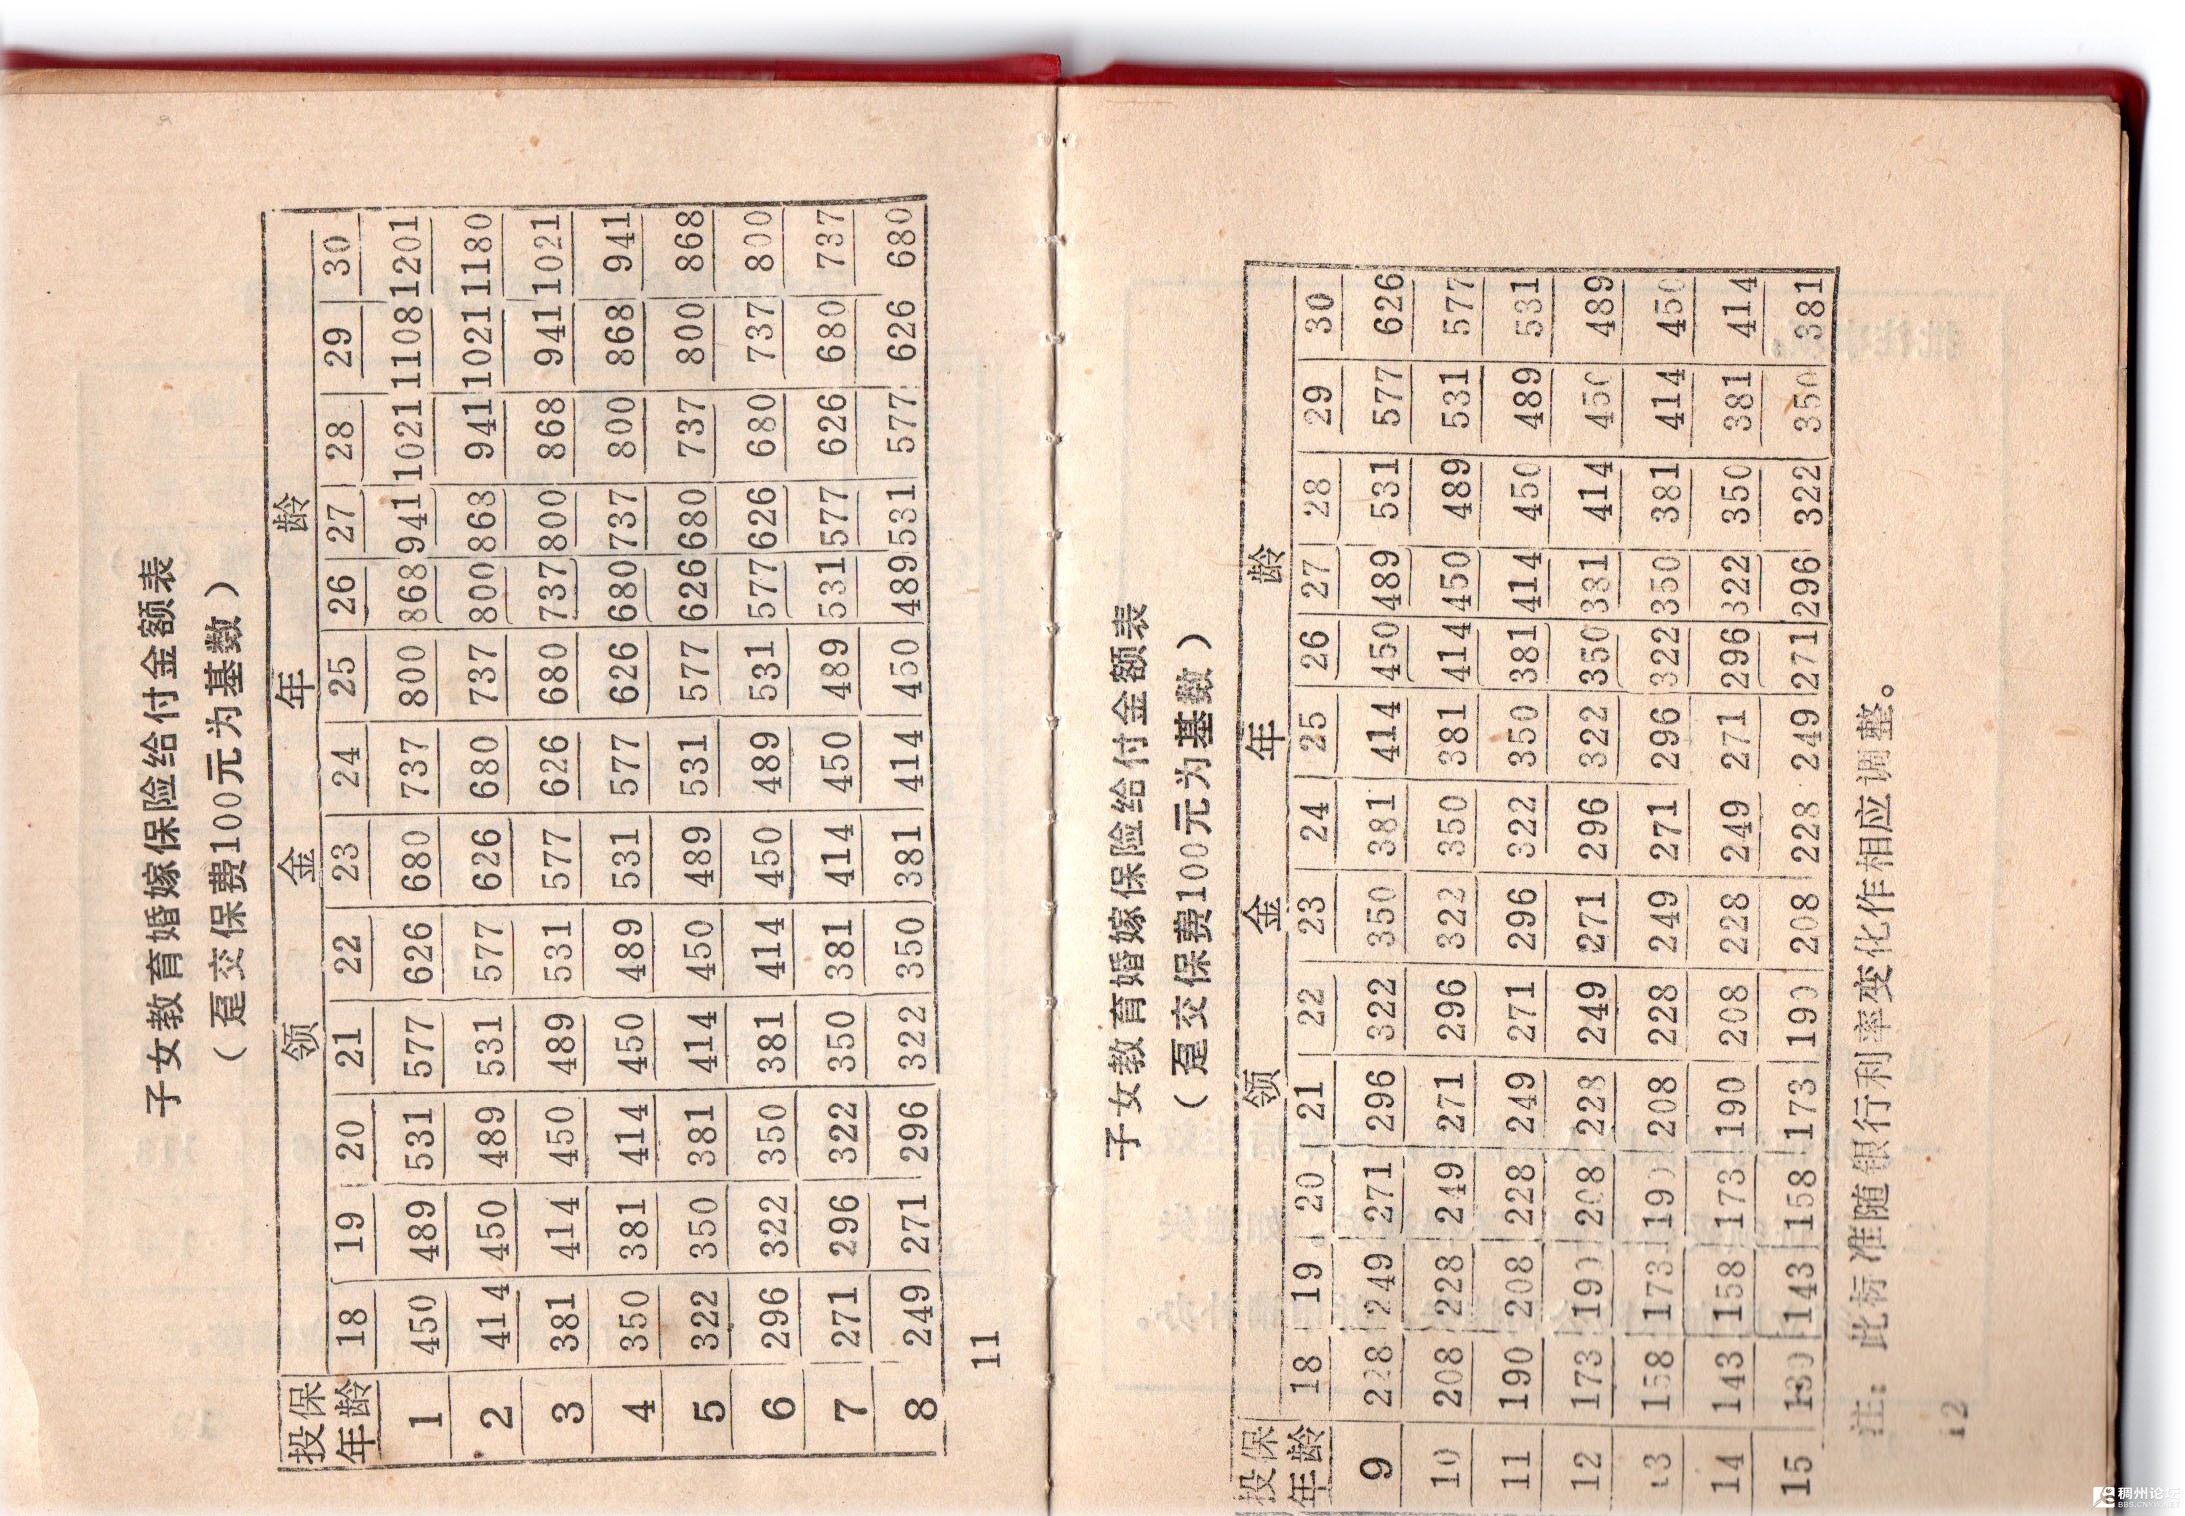 子女教育婚嫁保险给付金额表
（趸交保费100元为基数）
投保年龄 领 金 年 龄
18 19 20 21 22 23 24 25 26 27 28 29 30
1 450 489 531 577 626 680 737 800 868 941 1021 1108 1201
2 414 450 489 531 577 626 680 737 800 868 941 1021 1180
3 381 414 450 489 531 577 626 680 737 800 868 941 1021
4 350 381 414 450 489 531 577 626 680 737 800 868 941
5 322 350 381 414 450 489 531 577 626 680 737 800 868
6 296 322 350 381 414 450 489 531 577 626 680 737 800
7 271 296 322 350 381 414 450 489 531 577 626 680 737
8 249 271 296 322 350 381 414 450 489 531 577 626 680
11
子女教育婚嫁保险给付金额表
（趸交保费100元为基数）
投保年龄 领 金 年 龄
18 19 20 21 22 23 24 25 26 27 28 29 30
9 228 249 271 296 322 350 381 414 450 489 531 577 626
10 208 228 249 271 296 322 350 381 414 450 489 531 577
11 190 208 228 249 271 296 322 350 381 414 450 489 531
12 173 190 208 228 249 271 296 322 350 381 414 450 489
13 158 173 190 208 228 249 271 296 322 350 381 414 450
14 143 158 173 190 208 228 249 271 296 322 350 381 414
15 130 143 158 173 190 208 228 249 271 296 322 350 381
注：此标准随银行利率变化作相应调整。
12
稠州论坛
BBS.CNYW.NET